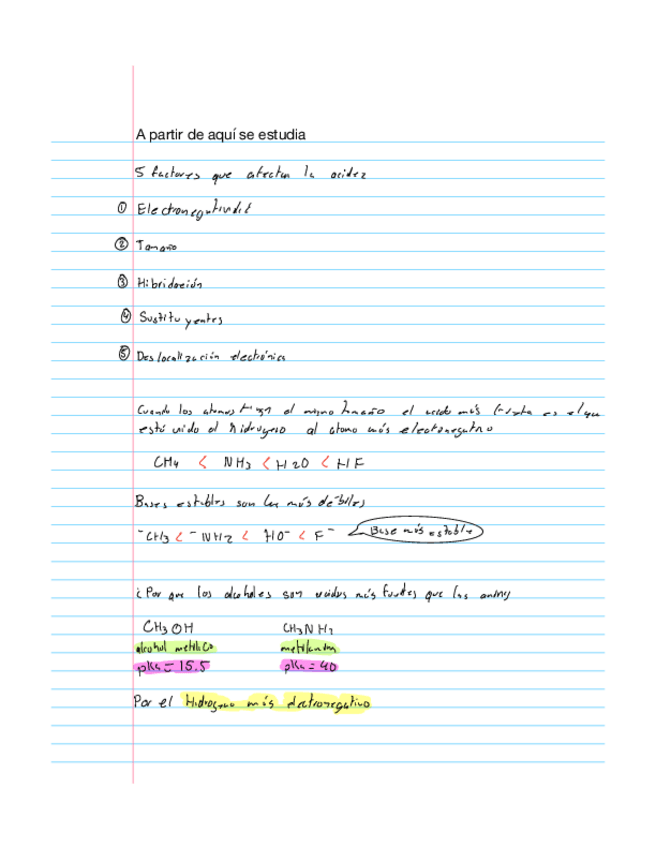 A partir de aquí se estudia
5 factores que afectan la acidez
① Electronegatividad
② Tamaño
③ Hibridación
④ Sustituyentes
⑤ Deslocalización electrónica
Cuando los atomos tengan el mismo tamaño el acido más fuerte es el que
está unido el hidrogeno al atomo más electronegativo
CH4 < NH3 < H2O < HF
Bases estables son las más débiles
⁻CH3 < ⁻NH2 < HO⁻ < F⁻ Base más estable
¿Por que los alcoholes son acidos más fuertes que las aminas
CH3OH CH3NH2
alcohol metilico metilamina
pKa = 15.5 pKa = 40
Por el Hidrogeno más electronegativo